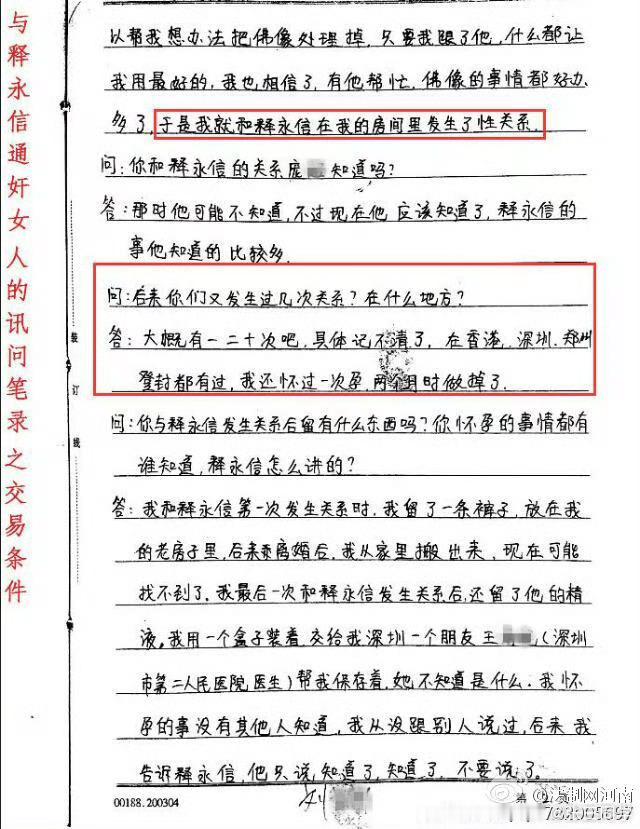 与释永信通奸女人的讯问笔录之交易条件
以帮我想办法把佛像处理掉，只要我跟了他，什么都让
我用最好的，我也相信了，有他帮忙，佛像的事情都好办
多了，于是我就和释永信在我的房间里发生了性关系。
问：你和释永信的关系庞 知道吗？
答：那时他可能不知道，不过现在他应该知道了，释永信的
事他知道的比较多。
问：后来你们又发生过几次关系？在什么地方？
答：大概有一二十次吧，具体记不清了，在香港、深圳、郑州
登封都有过，我还怀过一次孕，两个月时做掉了。
问：你与释永信发生关系后留有什么东西吗？你怀孕的事情都有
谁知道，释永信怎么讲的？
答：我和释永信第一次发生关系时，我留了一条裤子，放在我
的老房子里，后来 离婚后，我从家里搬出来，现在可能
找不到了。我最后一次和释永信发生关系后，还留了他的精
液，我用一个盒子装着交给我深圳一个朋友王 （深圳
市第二人民医院医生）帮我保存着，她不知道是什么。我怀
孕的事没有其他人知道，我从没跟别人说过，后来我
告诉释永信，他只说知道了，知道了，不要说了。
装
订
线
00188.200304
第 页
法制网河南
782005697